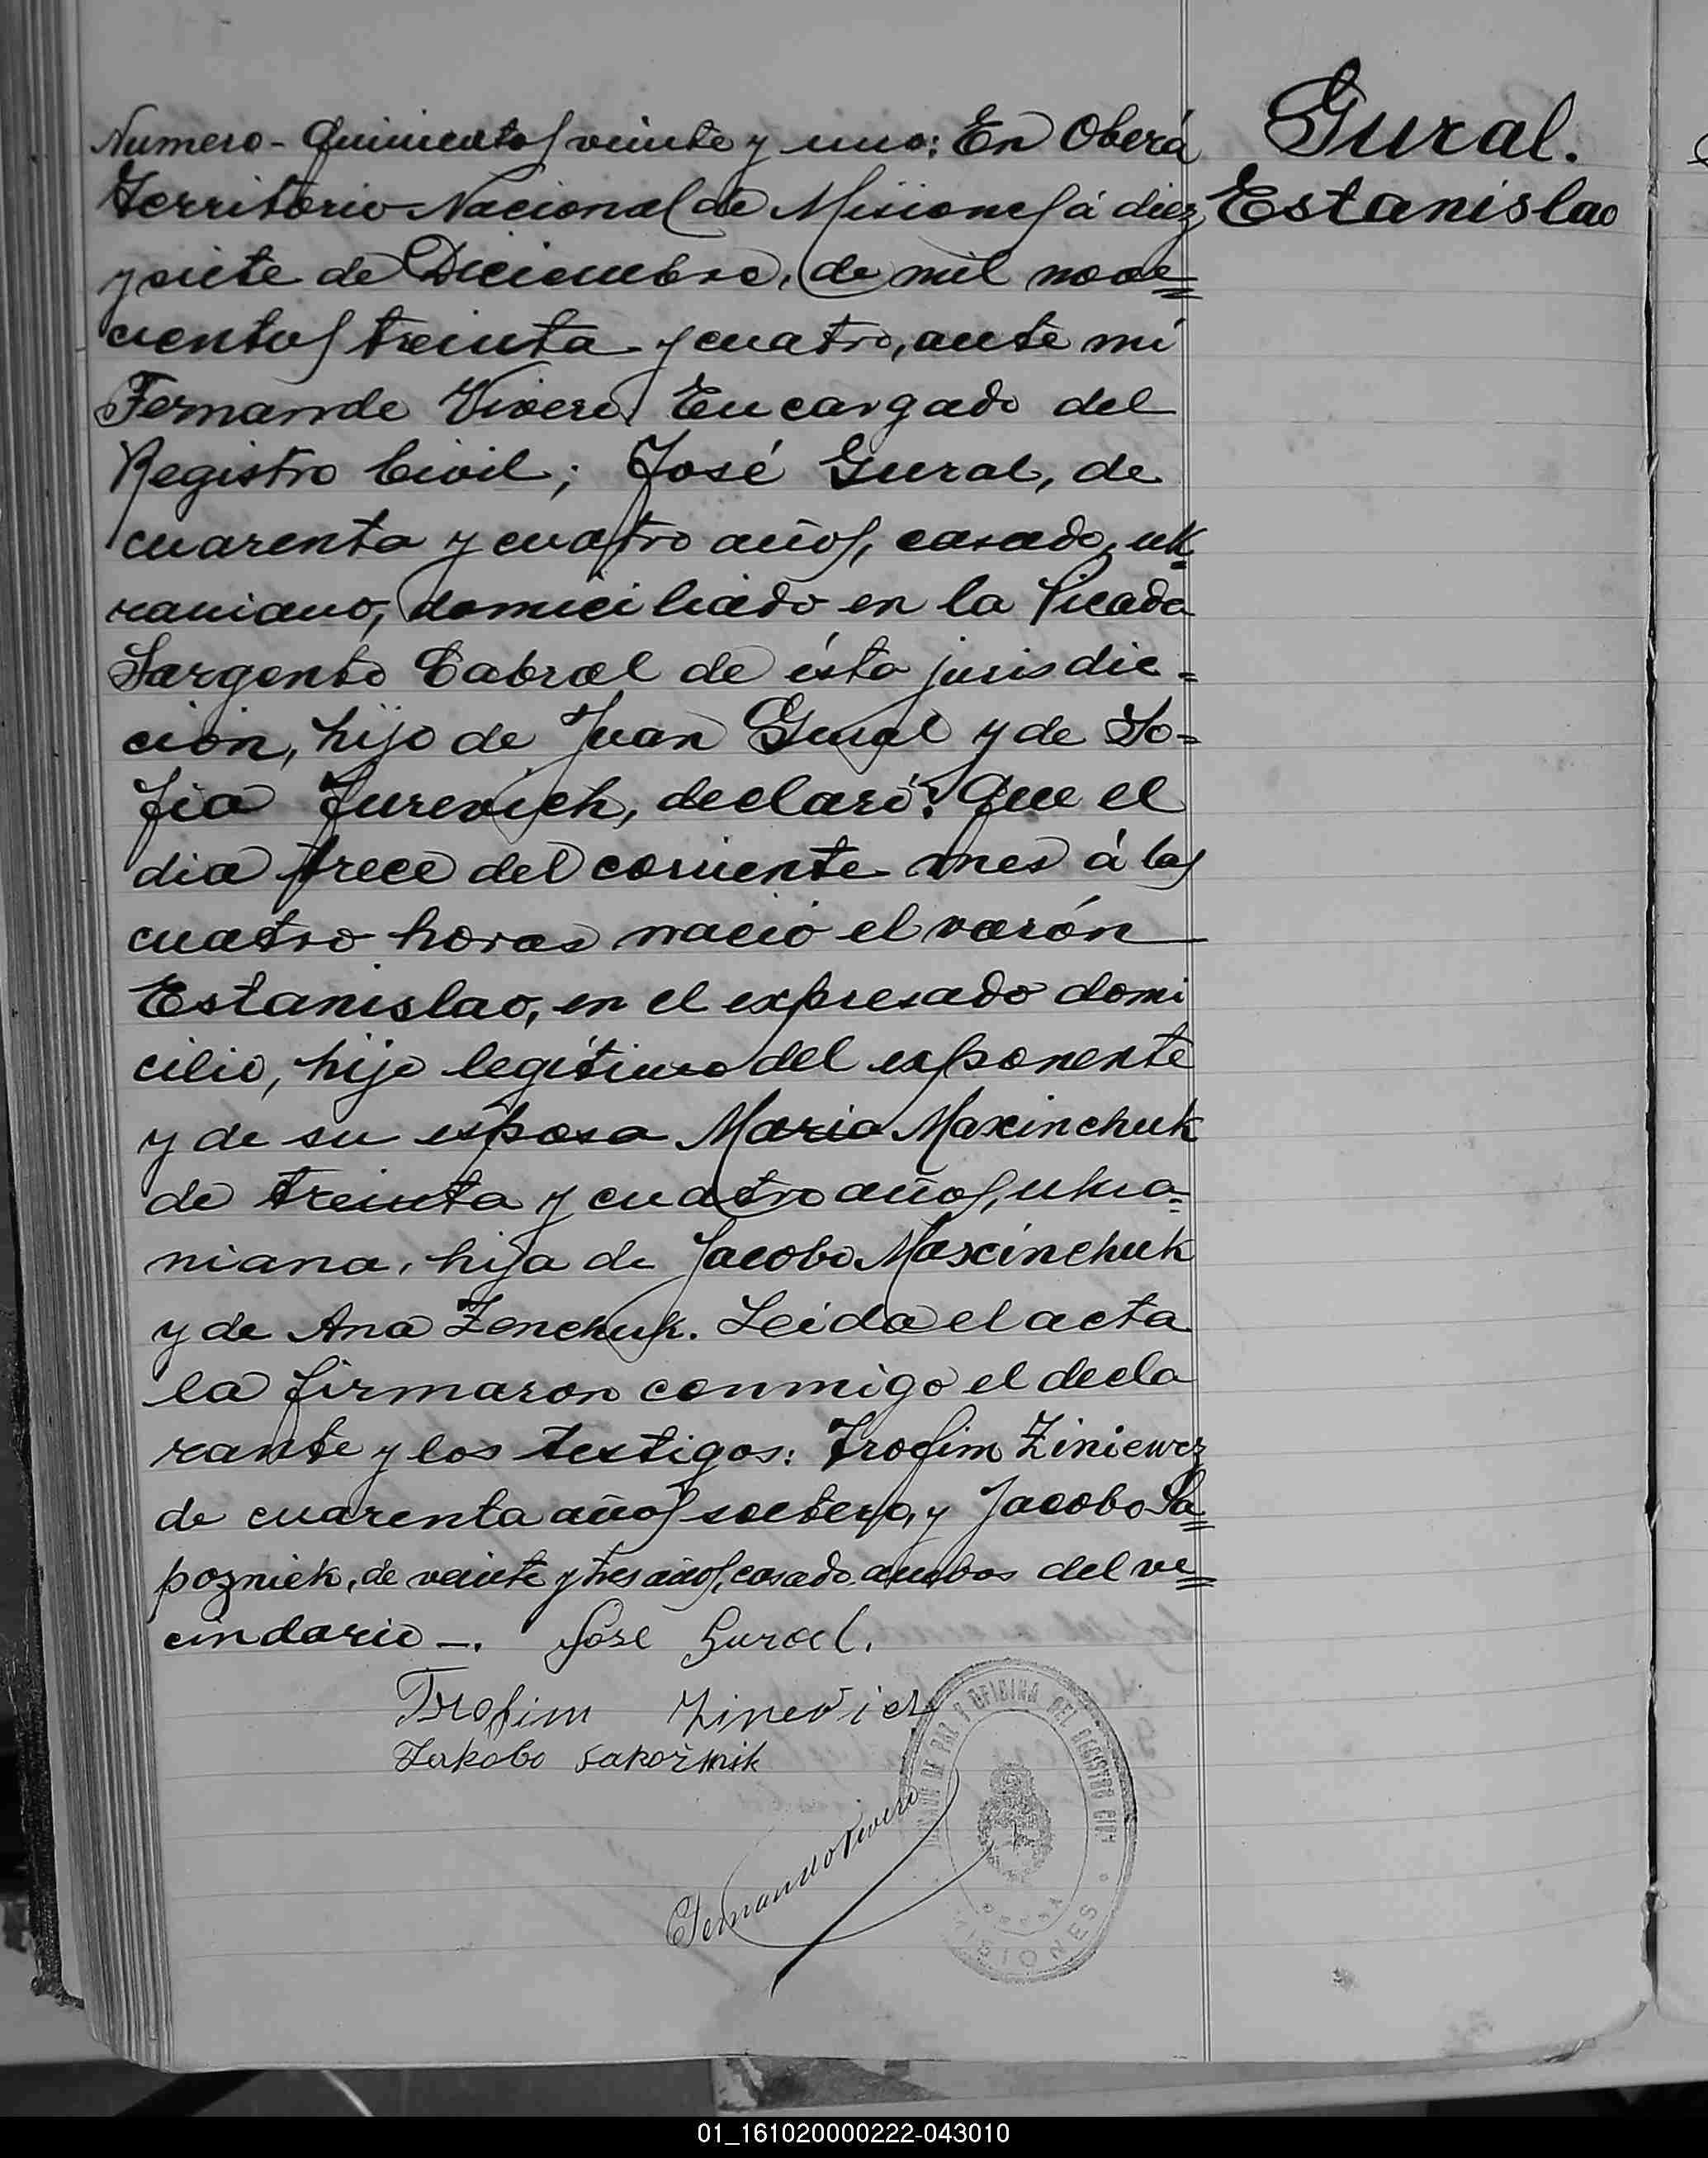 Gural.
Estanislao
Numero - Quinientos veinte y uno: En Oberá
Territorio Nacional de Misiones á diez
y siete de Diciembre, de mil nove=
cientos treinta y cuatro, ante mi
Fernando Vivero Encargado del
Registro Civil; José Gural, de
cuarenta y cuatro años, casado, uk=
raniano, domiciliado en la Picada
Sargento Cabral de ésta jurisdic=
ción, hijo de Juan Gural y de So=
fia Jurevich, declaró: Que el
dia trece del corriente mes á las
cuatro horas nació el varón
Estanislao, en el expresado domi
cilio, hijo legítimo del exponente
y de su esposa Maria Maxinchuk
de treinta y cuatro años, ukra=
niana, hija de Jacobo Maxinchuk
y de Ana Zenchuk. Leida el acta
la firmaron conmigo el decla
rante y los testigos: Trofim Ziniewcz
de cuarenta años soltero, y Jacobo Sa=
pozniek, de veinte y tres años, casado ambos del ve=
cindario -. José Gural.
Trofim Zinevicz
Jakobo Sakożnik
Fernando Vivero
JUZGADO DE PAZ Y OFICINA DEL REGISTRO CIVIL
MISIONES
01_161020000222-043010